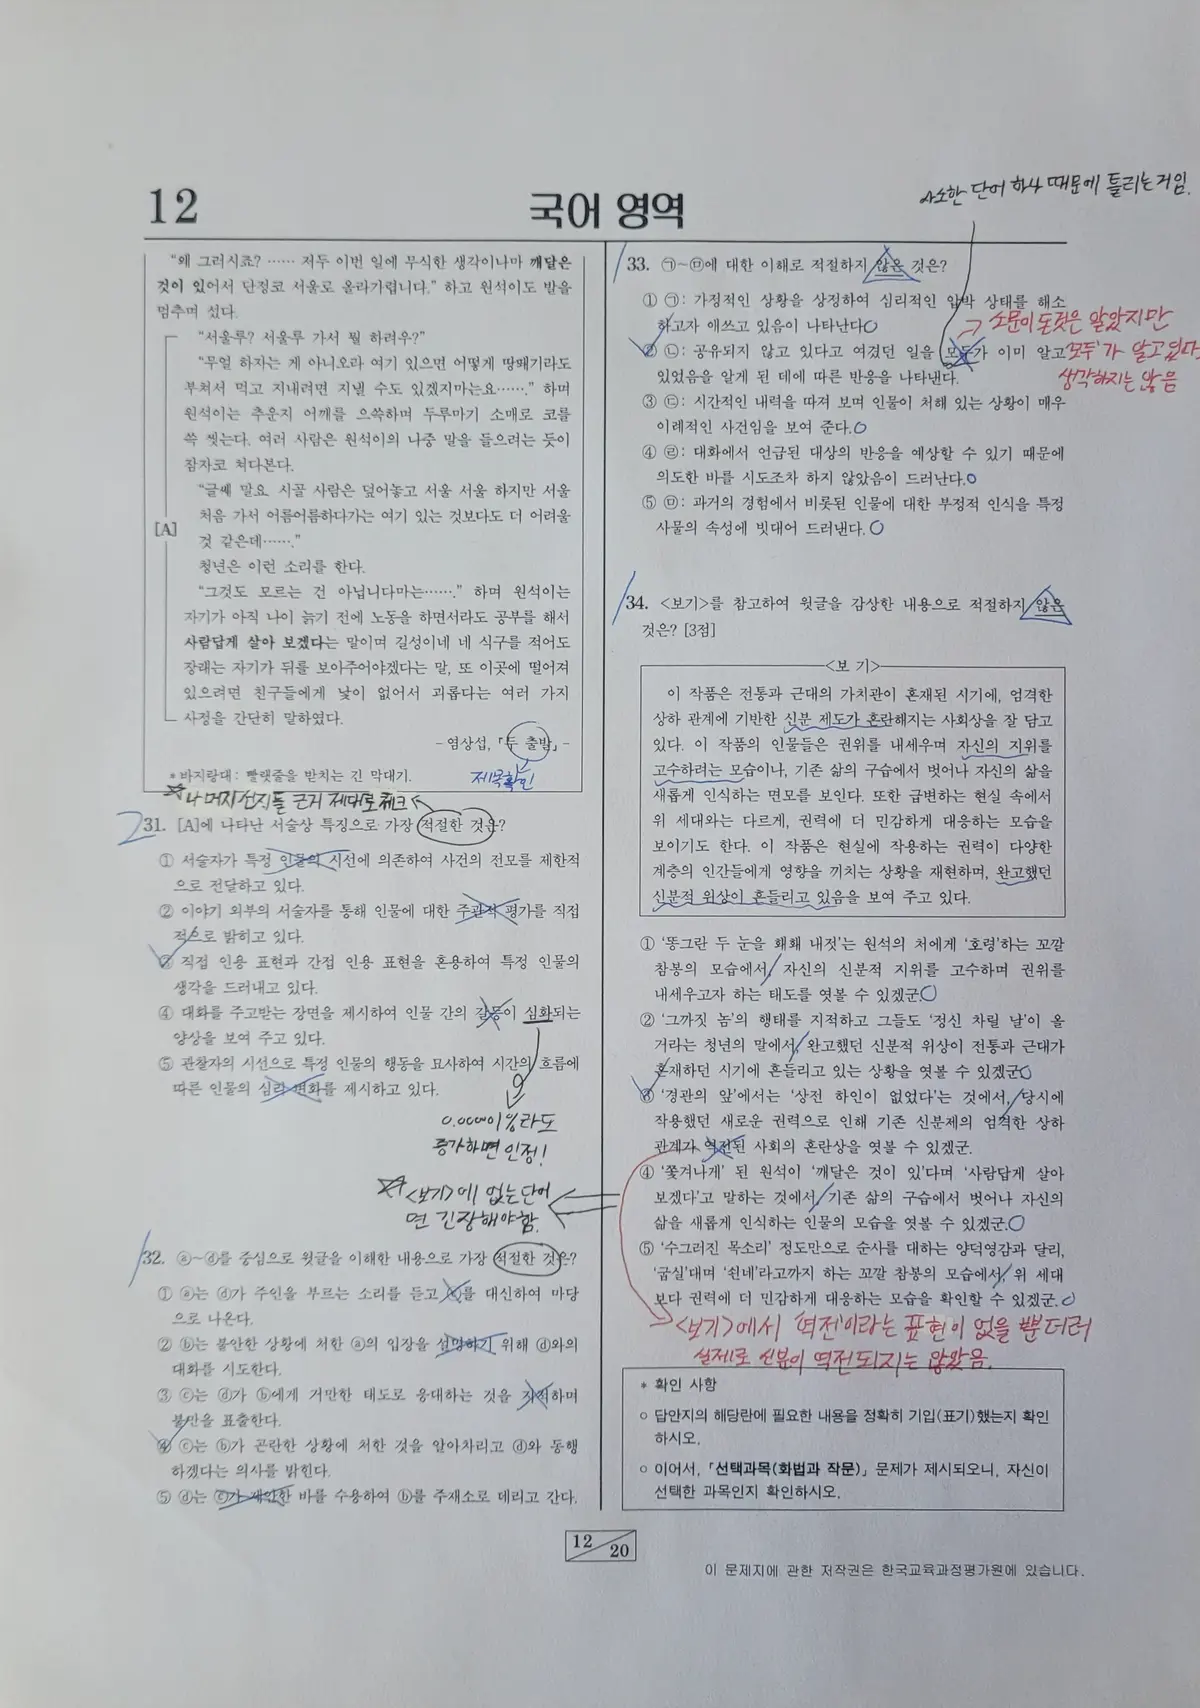 12
국어 영역
사소한 단어 하나 때문에 틀리는거임.
“왜 그러시죠? …… 저두 이번 일에 무식한 생각이나마 깨달은
것이 있어서 단정코 서울로 올라가렵니다.” 하고 원석이도 발을
멈추며 섰다.
“서울루? 서울루 가서 뭘 하려우?”
“무얼 하자는 게 아니오라 여기 있으면 어떻게 땅뙈기라도
부쳐서 먹고 지내려면 지낼 수도 있겠지마는요…….” 하며
원석이는 추운지 어깨를 으쓱하며 두루마기 소매로 코를
쓱 씻는다. 여러 사람은 원석이의 나중 말을 들으려는 듯이
잠자코 쳐다본다.
“글쎄 말요. 시골 사람은 덮어놓고 서울 서울 하지만 서울
처음 가서 어름어름하다가는 여기 있는 것보다도 더 어려울
[A]
것 같은데…….”
청년은 이런 소리를 한다.
“그것도 모르는 건 아닙니다마는…….” 하며 원석이는
자기가 아직 나이 늙기 전에 노동을 하면서라도 공부를 해서
사람답게 살아 보겠다는 말이며 길성이네 네 식구를 적어도
장래는 자기가 뒤를 보아주어야겠다는 말, 또 이곳에 떨어져
있으려면 친구들에게 낯이 없어서 괴롭다는 여러 가지
사정을 간단히 말하였다.
- 염상섭, 「두 출발」 -
* 바지랑대: 빨랫줄을 받치는 긴 막대기.
제목확인
나머지 선지들 근거 제대로 체크
31. [A]에 나타난 서술상 특징으로 가장 적절한 것은?
① 서술자가 특정 인물의 시선에 의존하여 사건의 전모를 제한적
으로 전달하고 있다.
② 이야기 외부의 서술자를 통해 인물에 대한 주관적 평가를 직접
적으로 밝히고 있다.
③ 직접 인용 표현과 간접 인용 표현을 혼용하여 특정 인물의
생각을 드러내고 있다.
④ 대화를 주고받는 장면을 제시하여 인물 간의 갈등이 심화되는
양상을 보여 주고 있다.
⑤ 관찰자의 시선으로 특정 인물의 행동을 묘사하여 시간의 흐름에
따른 인물의 심리 변화를 제시하고 있다.
0.00001%라도
증가하면 인정!
<보기>에 없는 단어
면 긴장해야함.
32. ⓐ~ⓓ를 중심으로 윗글을 이해한 내용으로 가장 적절한 것은?
① ⓐ는 ⓓ가 주인을 부르는 소리를 듣고 ⓒ를 대신하여 마당
으로 나온다.
② ⓑ는 불안한 상황에 처한 ⓐ의 입장을 설명하기 위해 ⓓ와의
대화를 시도한다.
③ ⓒ는 ⓓ가 ⓑ에게 거만한 태도로 응대하는 것을 지적하며
불만을 표출한다.
④ ⓒ는 ⓑ가 곤란한 상황에 처한 것을 알아차리고 ⓓ와 동행
하겠다는 의사를 밝힌다.
⑤ ⓓ는 ⓒ가 제안한 바를 수용하여 ⓑ를 주재소로 데리고 간다.
33. ㉠~㉤에 대한 이해로 적절하지 않은 것은?
① ㉠: 가정적인 상황을 상정하여 심리적인 압박 상태를 해소
하고자 애쓰고 있음이 나타난다.
② ㉡: 공유되지 않고 있다고 여겼던 일을 모두가 이미 알고
있었음을 알게 된 데에 따른 반응을 나타낸다.
소문이 돈 것은 알았지만
'모두'가 알고 있다
생각하지는 않음
③ ㉢: 시간적인 내력을 따져 보며 인물이 처해 있는 상황이 매우
이례적인 사건임을 보여 준다.
④ ㉣: 대화에서 언급된 대상의 반응을 예상할 수 있기 때문에
의도한 바를 시도조차 하지 않았음이 드러난다.
⑤ ㉤: 과거의 경험에서 비롯된 인물에 대한 부정적 인식을 특정
사물의 속성에 빗대어 드러낸다.
34. <보기>를 참고하여 윗글을 감상한 내용으로 적절하지 않은
것은? [3점]
<보 기>
이 작품은 전통과 근대의 가치관이 혼재된 시기에, 엄격한
상하 관계에 기반한 신분 제도가 혼란해지는 사회상을 잘 담고
있다. 이 작품의 인물들은 권위를 내세우며 자신의 지위를
고수하려는 모습이나, 기존 삶의 구습에서 벗어나 자신의 삶을
새롭게 인식하는 면모를 보인다. 또한 급변하는 현실 속에서
위 세대와는 다르게, 권력에 더 민감하게 대응하는 모습을
보이기도 한다. 이 작품은 현실에 작용하는 권력이 다양한
계층의 인간들에게 영향을 끼치는 상황을 재현하며, 완고했던
신분적 위상이 흔들리고 있음을 보여 주고 있다.
① ‘똥그란 두 눈을 홰홰 내젓’는 원석의 처에게 ‘호령’하는 꼬깔
참봉의 모습에서, 자신의 신분적 지위를 고수하며 권위를
내세우고자 하는 태도를 엿볼 수 있겠군.
② ‘그까짓 놈’의 행태를 지적하고 그들도 ‘정신 차릴 날’이 올
거라는 청년의 말에서, 완고했던 신분적 위상이 전통과 근대가
혼재하던 시기에 흔들리고 있는 상황을 엿볼 수 있겠군.
③ ‘경관의 앞’에서는 ‘상전 하인이 없었다’는 것에서, 당시에
작용했던 새로운 권력으로 인해 기존 신분제의 엄격한 상하
관계가 역전된 사회의 혼란상을 엿볼 수 있겠군.
④ ‘쫓겨나게’ 된 원석이 ‘깨달은 것이 있’다며 ‘사람답게 살아
보겠다’고 말하는 것에서, 기존 삶의 구습에서 벗어나 자신의
삶을 새롭게 인식하는 인물의 모습을 엿볼 수 있겠군.
⑤ ‘수그러진 목소리’ 정도만으로 순사를 대하는 양덕영감과 달리,
‘굽실’대며 ‘쇤네’라고까지 하는 꼬깔 참봉의 모습에서, 위 세대
보다 권력에 더 민감하게 대응하는 모습을 확인할 수 있겠군.
<보기>에서 '역전'이라는 표현이 없을 뿐더러
실제로 신분이 역전되지는 않았음.
* 확인 사항
○ 답안지의 해당란에 필요한 내용을 정확히 기입(표기)했는지 확인
하시오.
○ 이어서, 「선택과목(화법과 작문)」 문제가 제시되오니, 자신이
선택한 과목인지 확인하시오.
12
20
이 문제지에 관한 저작권은 한국교육과정평가원에 있습니다.